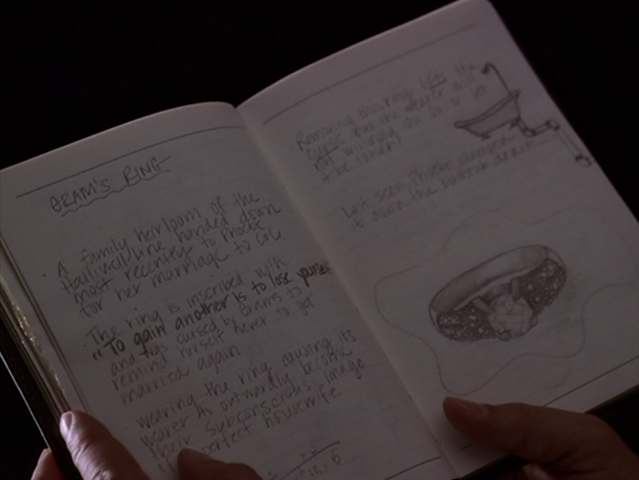 GRAM'S RING
A family heirloom of the
Halliwell line handed down
most recently to Phoebe
for her marriage to Cole
The ring is inscribed with
"To gain another is to lose yourself"
and was cursed by Grams to
remind herself never to get
married again
wearing the ring causing its
bearer to outwardly become
their subconscious image
perfect housewife
Removing this ring lifts the
curse but the wearer will
not willingly do so
be
Last seen Phoebe dumped
it down the bathtub drain...